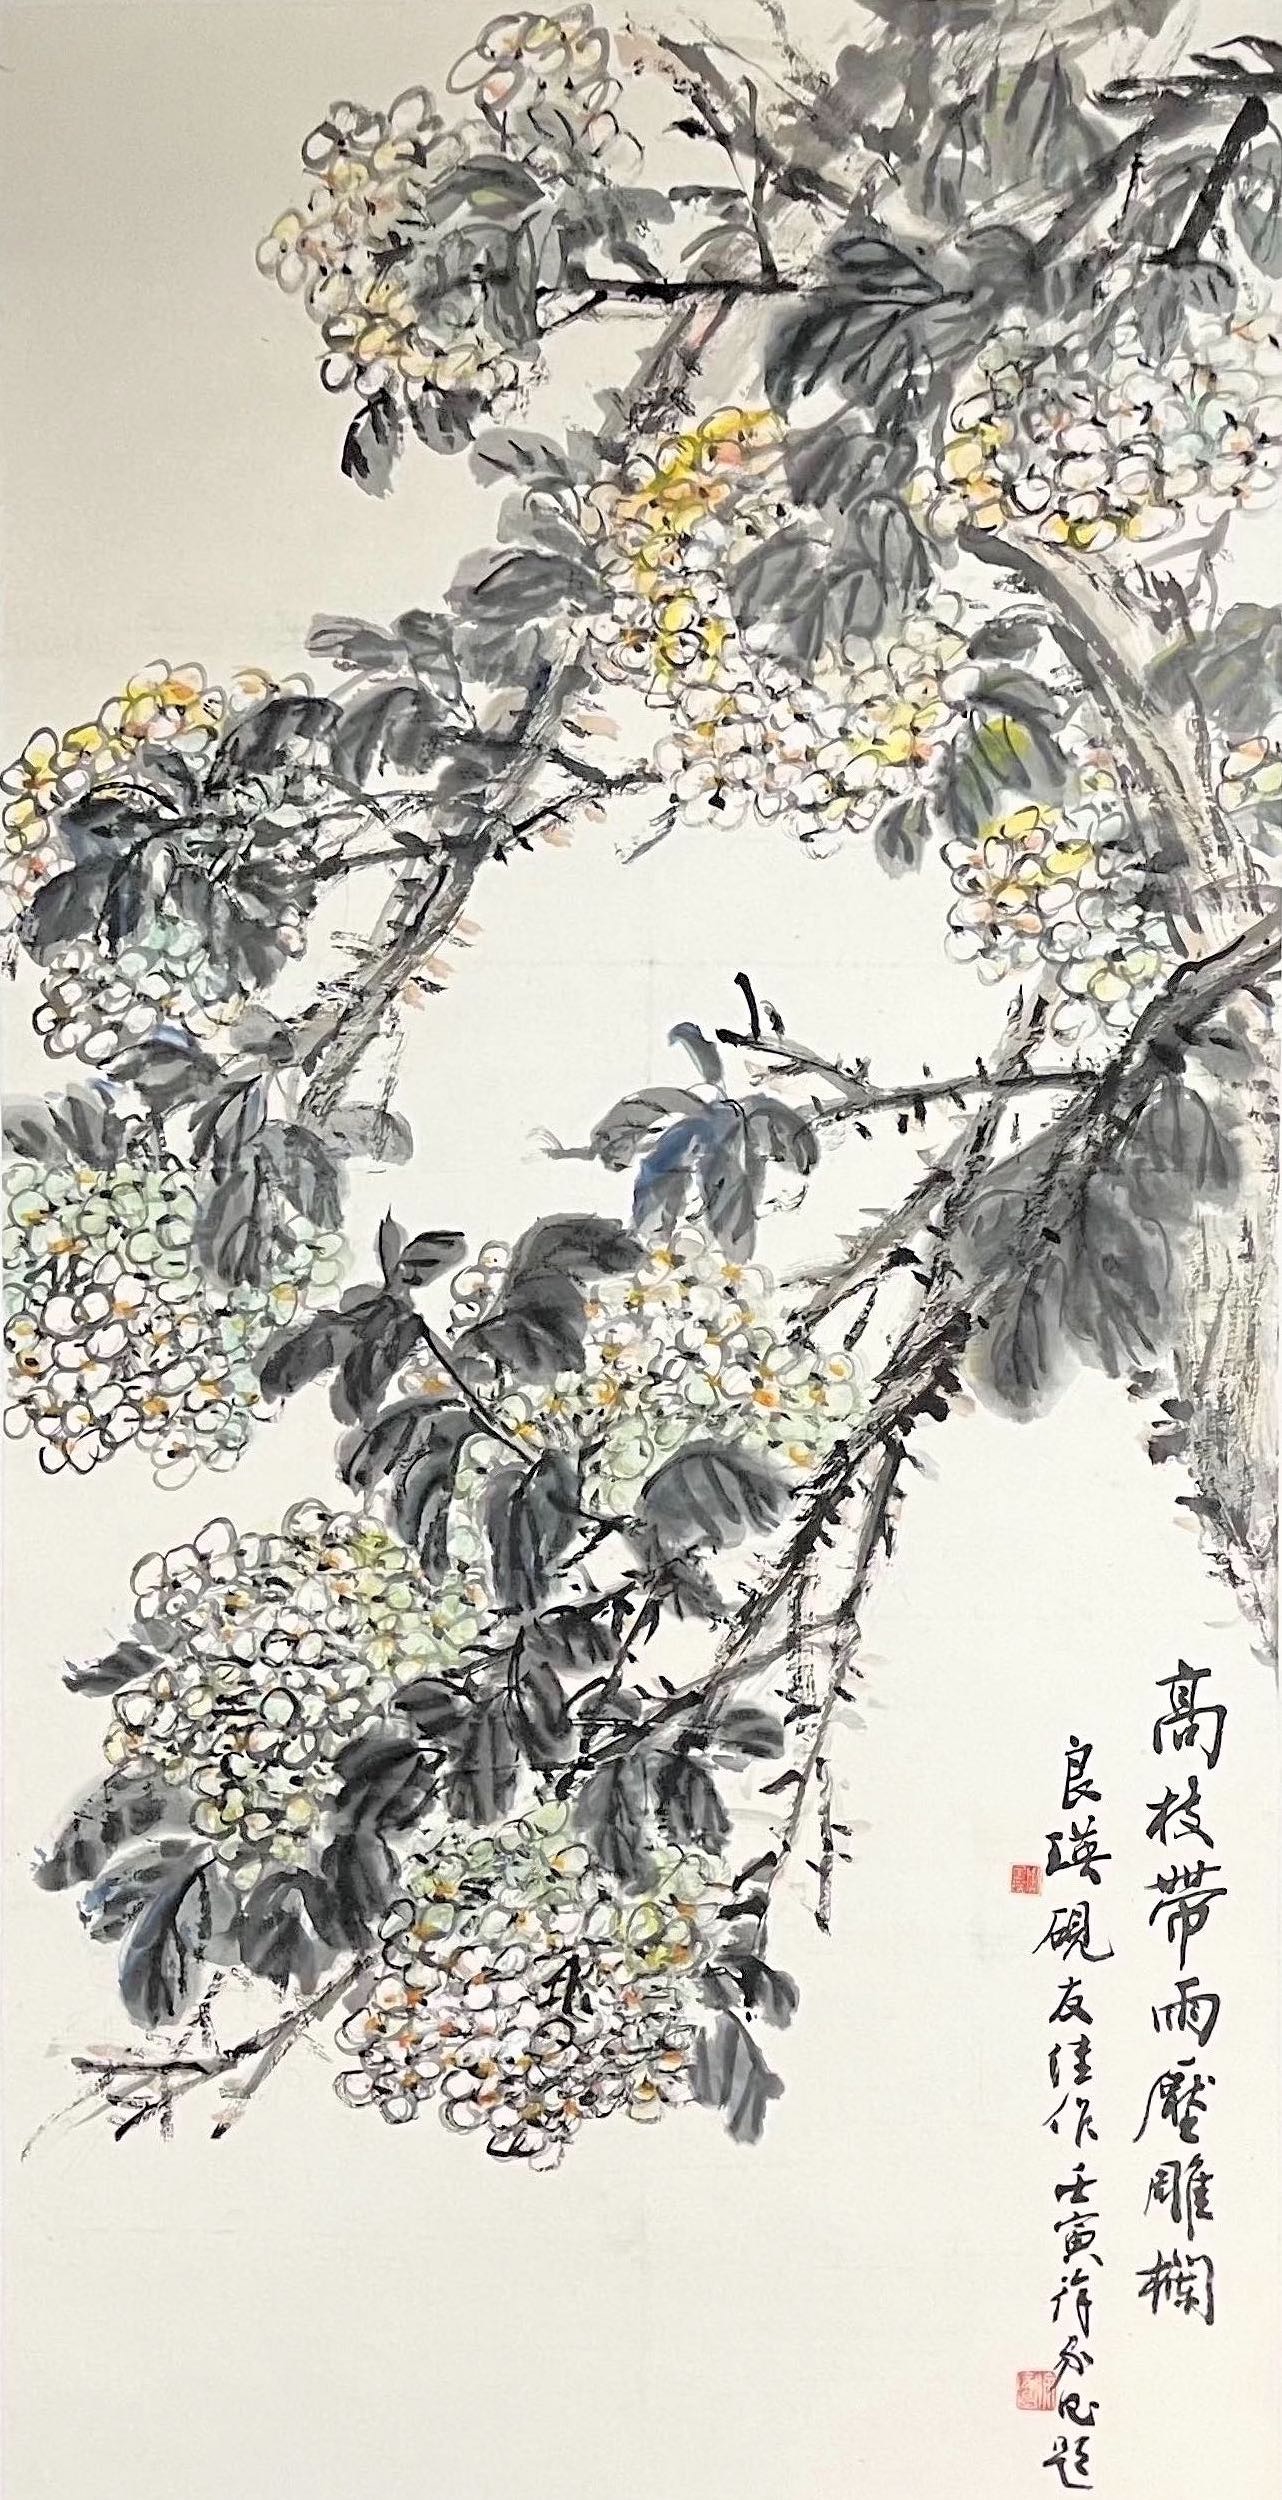 高枝帶雨壓雕欄
良瑛硯友佳作壬寅徐
題